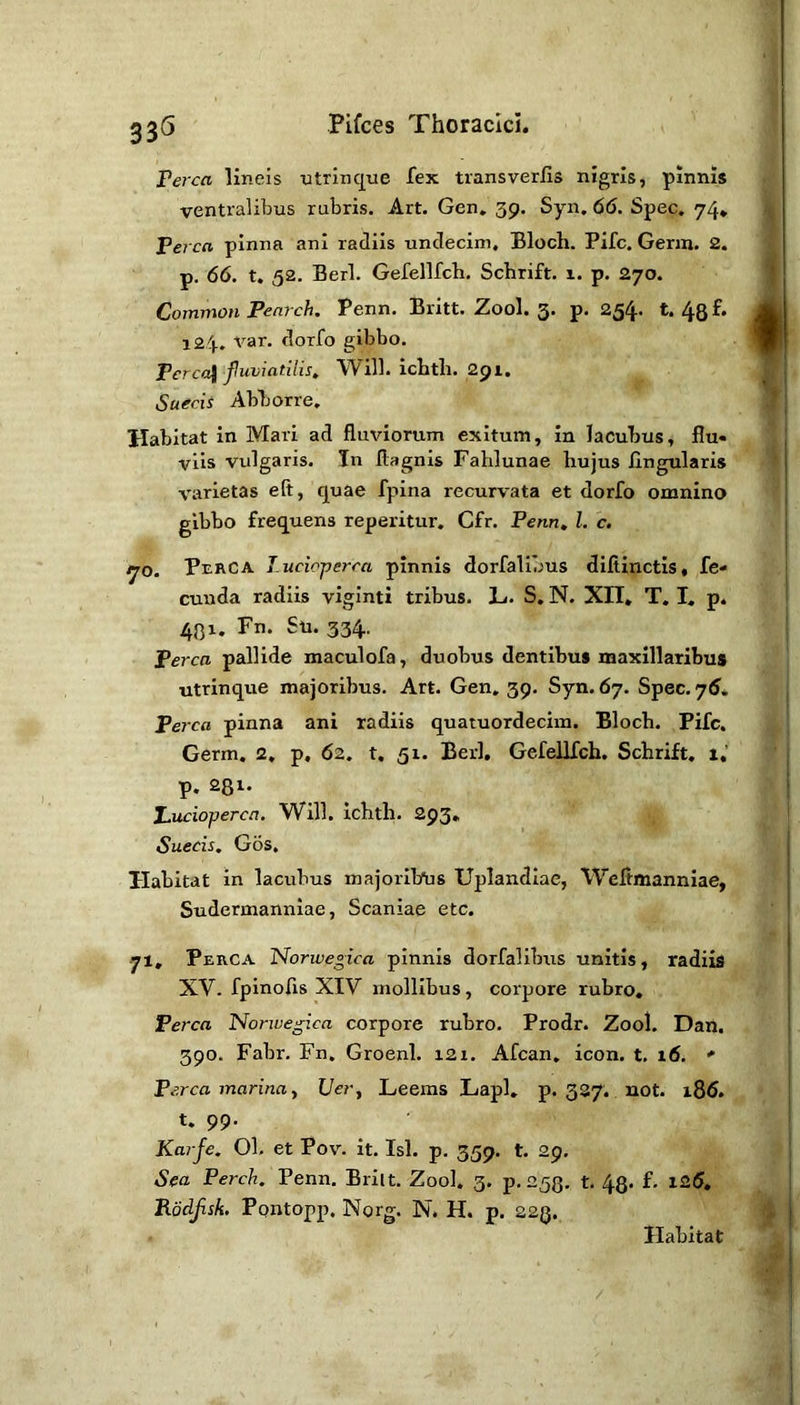 336 Piſces Thoracici.
Perca lineis utrinque ſex transverſis nigris, pinnis
ventralibus rubris. Art. Gen. 39. Syn. 66. Spec. 74.
Perca pinna ani radiis undecim. Bloch. Piſc. Germ. 2.
p. 66. t. 52. Berl. Geſellſch. Schrift. 1. p. 270.
Common Pearch. Penn. Britt. Zool. 3. p. 254. t. 48 f.
124. var. dorſo gibbo.
Perca fluviatilis. Will. ichth. 291.
Suecis Abborre.
Habitat in Mari ad fluviorum exitum, in lacubus, flu-
viis vulgaris. In ſtagnis Fahlunae hujus ſingularis
varietas eſt, quae ſpina recurvata et dorſo omnino
gibbo frequens reperitur. Cfr. Penn. l. c.
70. Perca Lucioperca pinnis dorſalibus diſtinctis, ſe-
cunda radiis viginti tribus. L. S. N. XII. T. I. p.
481. Fn. Su. 334.
Perca pallide maculoſa, duobus dentibus maxillaribus
utrinque majoribus. Art. Gen. 39. Syn. 67. Spec. 76.
Perca pinna ani radiis quatuordecim. Bloch. Piſc.
Germ. 2. p. 62. t. 51. Berl. Geſellſch. Schrift. 1.
p. 281.
Lucioperca. Will. ichth. 293.
Suecis. Gös.
Habitat in lacubus majoribus Uplandiae, Weſtmanniae,
Sudermanniae, Scaniae etc.
71. Perca Norwegica pinnis dorſalibus unitis, radiis
XV. ſpinoſis XIV mollibus, corpore rubro.
Perca Norwegica corpore rubro. Prodr. Zool. Dan.
390. Fabr. Fn. Groenl. 121. Aſcan. icon. t. 16.
Perca marina, Uer, Leems Lapl. p. 327. not. 186.
t. 99.
Karfe. Ol. et Pov. it. Isl. p. 359. t. 29.
Sea Perch. Penn. Britt. Zool. 3. p. 258. t. 48. f. 126.
Rödfisk. Pontopp. Norg. N. H. p. 228.
Habitat